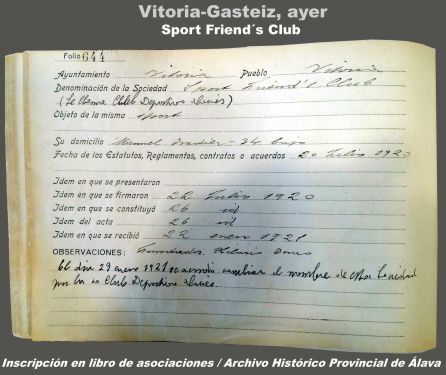 Vitoria-Gasteiz, ayer
Sport Friend´s Club
Folio 644
Ayuntamiento Vitoria Pueblo Vitoria
Denominación de la Sociedad Sport Friend's Club
(Se llama Club Deportivo Alavés)
Objeto de la misma sport
Su domicilio Manuel Iradier - 34 bajo
Fecha de los Estatutos, Reglamentos, contratos o acuerdos 20 Julio 1920
Idem en que se presentaron
Idem en que se firmaron 22 Julio 1920
Idem en que se constituyó 26 id
Idem del acta 26 id
Idem en que se recibió 22 enero 1921
OBSERVACIONES: Fundador, Hilario
El dia 23 enero 1921 se acordó cambiar el nombre de esta Sociedad
por la de Club Deportivo Alavés.
Inscripción en libro de asociaciones / Archivo Histórico Provincial de Álava